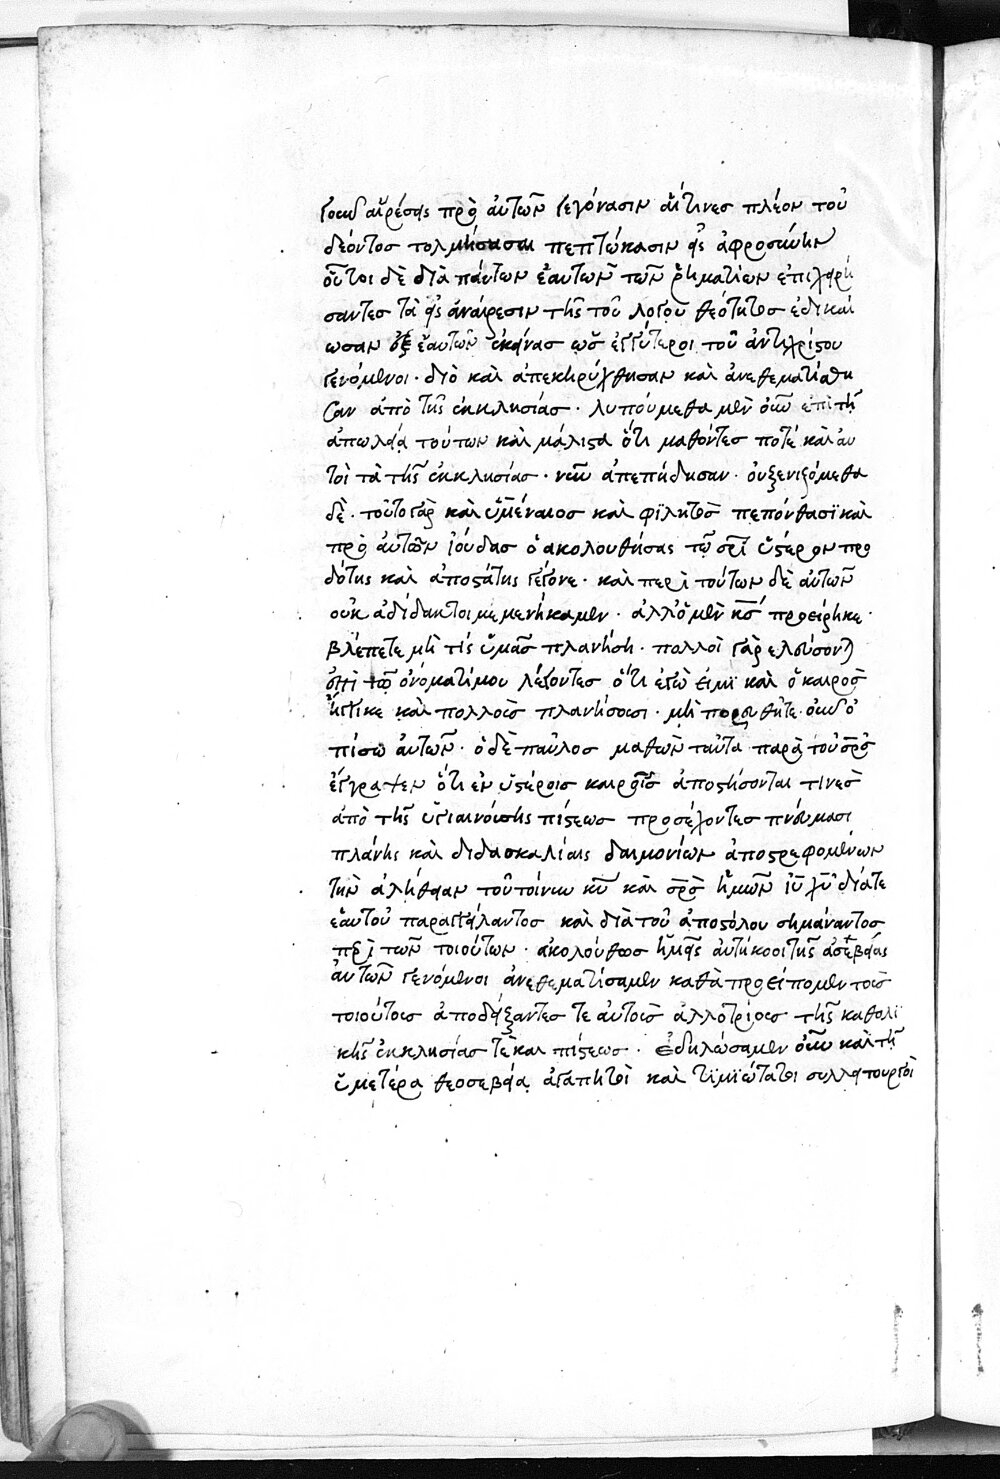 γοῦν αἱρέσεις πρὸ αὐτῶν γεγόνασιν αἵτινες πλέον τοῦ
δέοντος τολμήσασαι πεπτώκασιν εἰς ἀφροσύνην
οὗτοι δὲ διὰ πάντων ἑαυτῶν τῶν ῥηματίων ἐπιχειρή
σαντες τὰ εἰς ἀναίρεσιν τῆς τοῦ λόγου θεότητος ἐδικαί
ωσαν ἐξ ἑαυτῶν ἐκείνας ὡς ἐγγύτεροι τοῦ ἀντιχρίστου
γενόμενοι · διὸ καὶ ἀπεκηρύχθησαν καὶ ἀνεθεματίσθη
σαν ἀπὸ τῆς ἐκκλησίας · λυπούμεθα μὲν οὖν ἐπὶ τῇ
ἀπωλείᾳ τούτων καὶ μάλιστα ὅτι μαθόντες ποτέ καὶ αὐ
τοὶ τὰ τῆς ἐκκλησίας · νῦν ἀπεπήδησαν · οὐ ξενιζόμεθα
δὲ · τοῦτο γὰρ καὶ ὑμέναιος καὶ φιλητὸς πεπόνθασι καὶ
πρὸ αὐτῶν ἰούδας ὁ ἀκολουθήσας τῷ σρι ὕστερον προ
δότης καὶ ἀποστάτης γέγονε · καὶ περὶ τούτων δὲ αὐτῶν
οὐκ ἀδίδακτοι μεμενήκαμεν · ἀλλ' ὁ μὲν κς προείρηκε ·
βλέπετε μή τις ὑμᾶς πλανήσῃ · πολλοὶ γὰρ ἐλεύσονται
ἐπὶ τῷ ὀνόματί μου λέγοντες ὅτι ἐγώ εἰμι καὶ ὁ καιρὸς
ἤγγικε καὶ πολλοὺς πλανήσουσι · μὴ πορευθῆτε οὖν ὀ
πίσω αὐτῶν · ὁ δὲ παῦλος μαθὼν ταῦτα παρὰ τοῦ σρς
ἔγραψεν ὅτι ἐν ὑστέροις καιροῖς ἀποστήσονταί τινες
ἀπὸ τῆς ὑγιαινούσης πίστεως προσέχοντες πνεύμασι
πλάνης καὶ διδασκαλίαις δαιμονίων ἀποστρεφομένων
τὴν ἀλήθειαν τοῦ τοίνυν κυ καὶ σρς ἡμῶν ιυ χυ διά τε
ἑαυτοῦ παραγγείλαντος καὶ διὰ τοῦ ἀποστόλου σημάναντος
περὶ τῶν τοιούτων · ἀκολούθως ἡμεῖς αὐτήκοοι τῆς ἀσεβείας
αὐτῶν γενόμενοι ἀνεθεματίσαμεν καθὰ προείπομεν τοὺς
τοιούτους ἀποδείξαντες τε αὐτοὺς ἀλλοτρίους τῆς καθολι
κῆς ἐκκλησίας τὲ καὶ πίστεως · ἐδηλώσαμεν οὖν καὶ τῇ
ὑμετέρᾳ θεοσεβείᾳ ἀγαπητοὶ καὶ τιμιώτατοι συλλειτουργοὶ